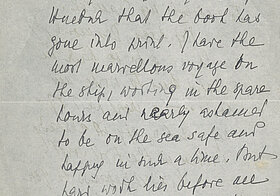 that the book has
gone into print. I have the
most marvellous voyage on
the ship, working in the spare
hours and nearly ashamed
to be on the sea safe and
happy in such a time. But
hard work lies before all